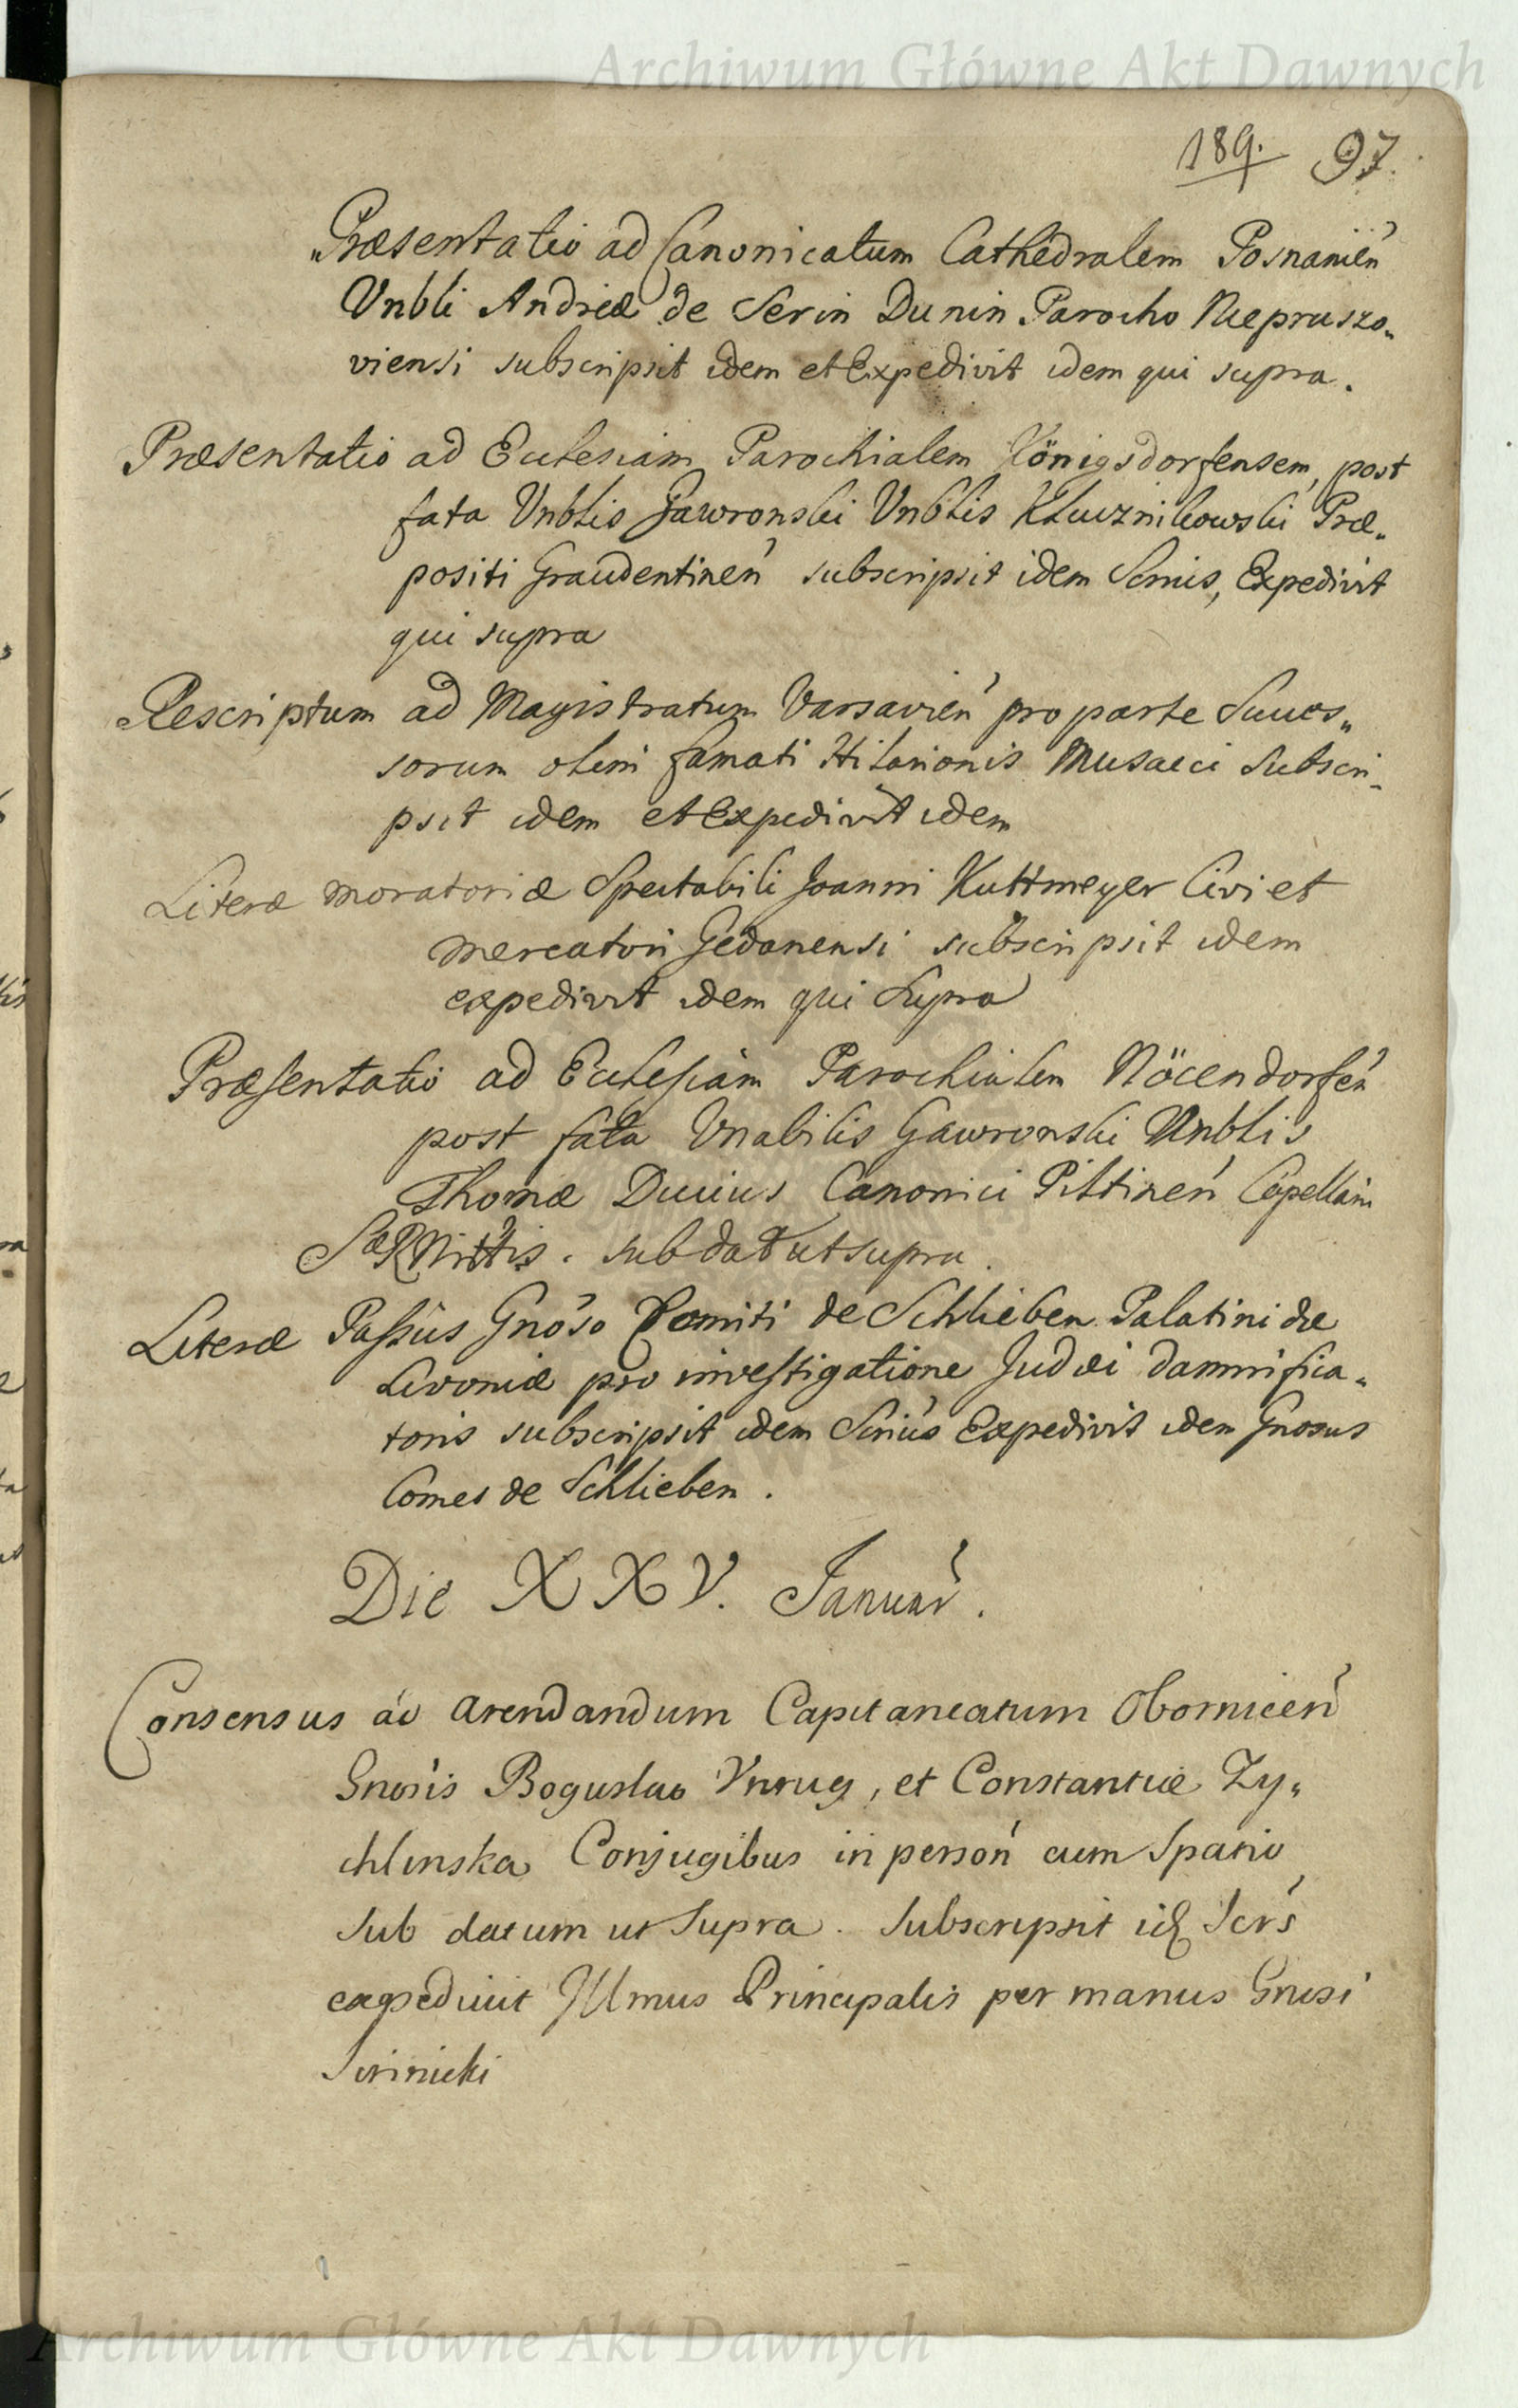 Archiwum Główne Akt Dawnych
189. 97.
Præsentatio ad Canonicatum Cathedralem Posnanień
Vnbli Andreæ de Serin Dunin Parocho Niepruszo„
viensi subscripsit idem et Expedivit idem qui supra.
Præsentatio ad Ecclesiam Parochialem Königsdorfensem, post
fata Vnblis Gawronski Vnblis Kluznikowski Præ„
positi Graudentineń subscripsit idem Srmis, Expedivit
qui supra
Rescriptum ad Magistratum Varsavień pro parte Succes„
sorum olim famati Hilarionis Musaeci Subscri„
psit idem et Expedivit idem
Literæ moratoriæ Spectabili Joanni Kuttmeyer Civi et
mercatori Gedanensi subscripsit idem
expedivit idem qui Supra
Præsentatio ad Ecclesiam Parochialem Nöcendorfeń
post fata Vnabilis Gawronski Vnblis
Thomæ Ducius Canonici Piltineń Capellani
sub dat ut supra.
Literæ Passus Gnoso Comiti de Schlieben Palatinidæ
Livoniæ pro investigatione Judæi damnifica„
toris subscripsit idem Srius Expedivit idem Gnosus
Comes de Schlieben.
Die XXV. Januar.
Consensus ad arendandum Capitaneatum Oborniceń
Gnosis Boguslao Vnrug, et Constantiæ Zy„
chlinska Conjugibus in personˊ cum Spatio
Sub datum ut Supra. Subscripsit id Scrs
expedivit Illmus Principalis per manus Gnosi
Swinicki
Archiwum Główne Akt Dawnych